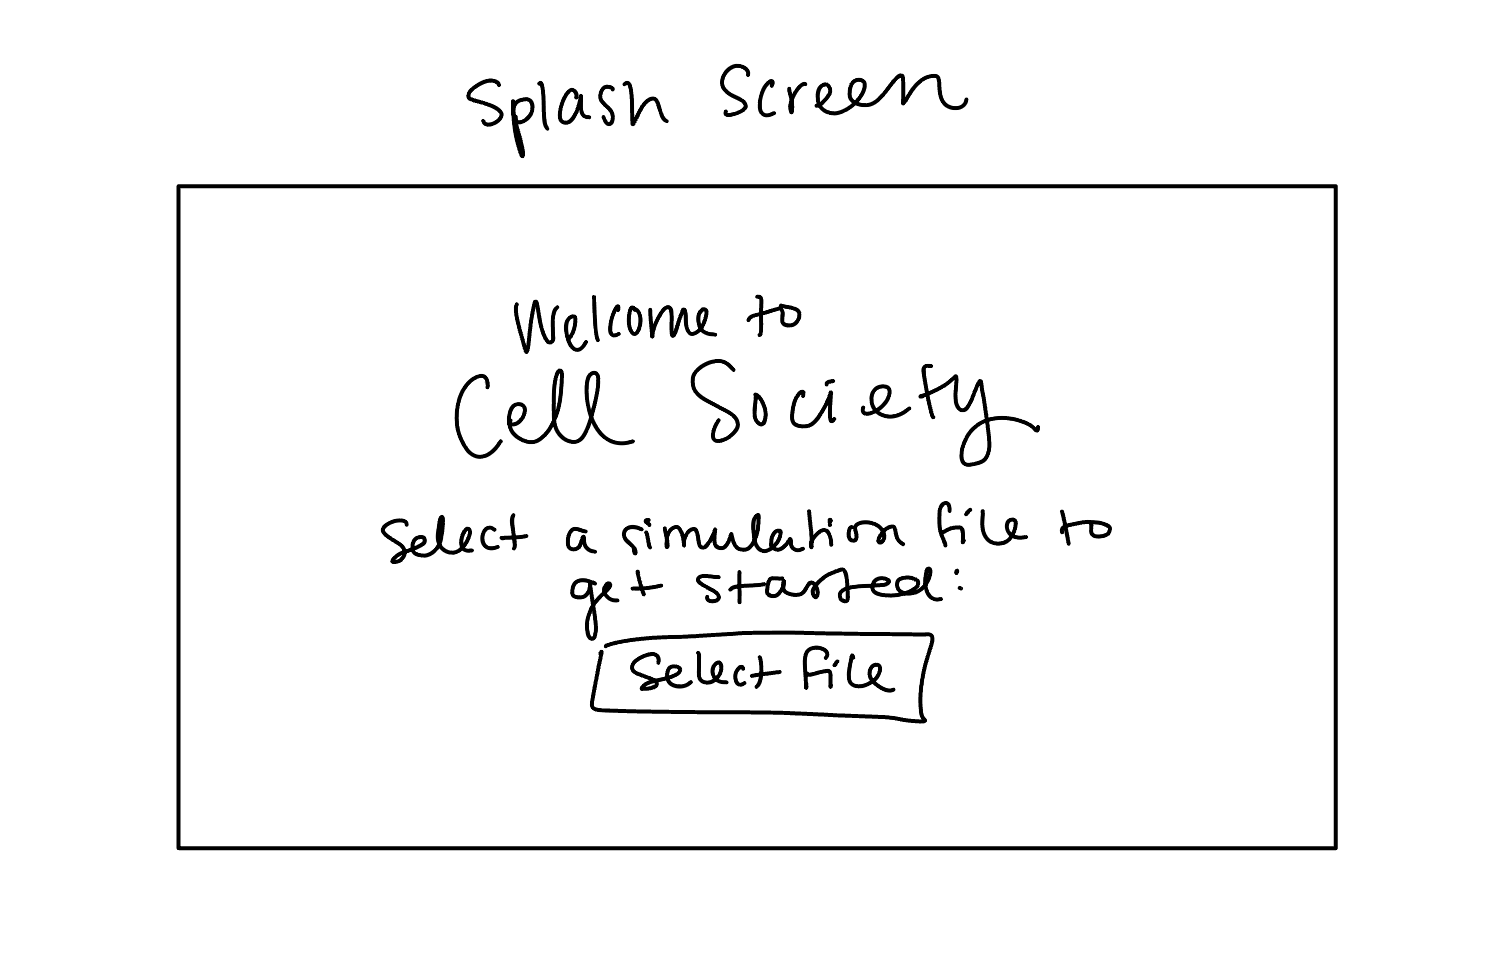 Splash Screen
Welcome to
Cell Society
Select a simulation file to
get started:
Select File